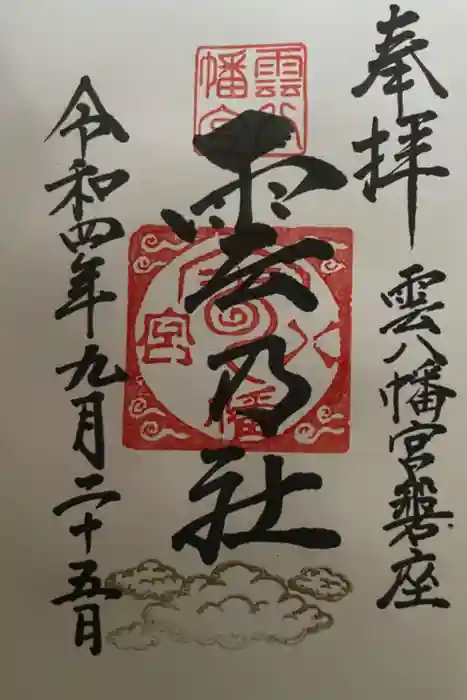 奉拝
雲八幡宮磐座
雲八幡宮
雲八幡宮
雲乃社
令和四年九月二十五日